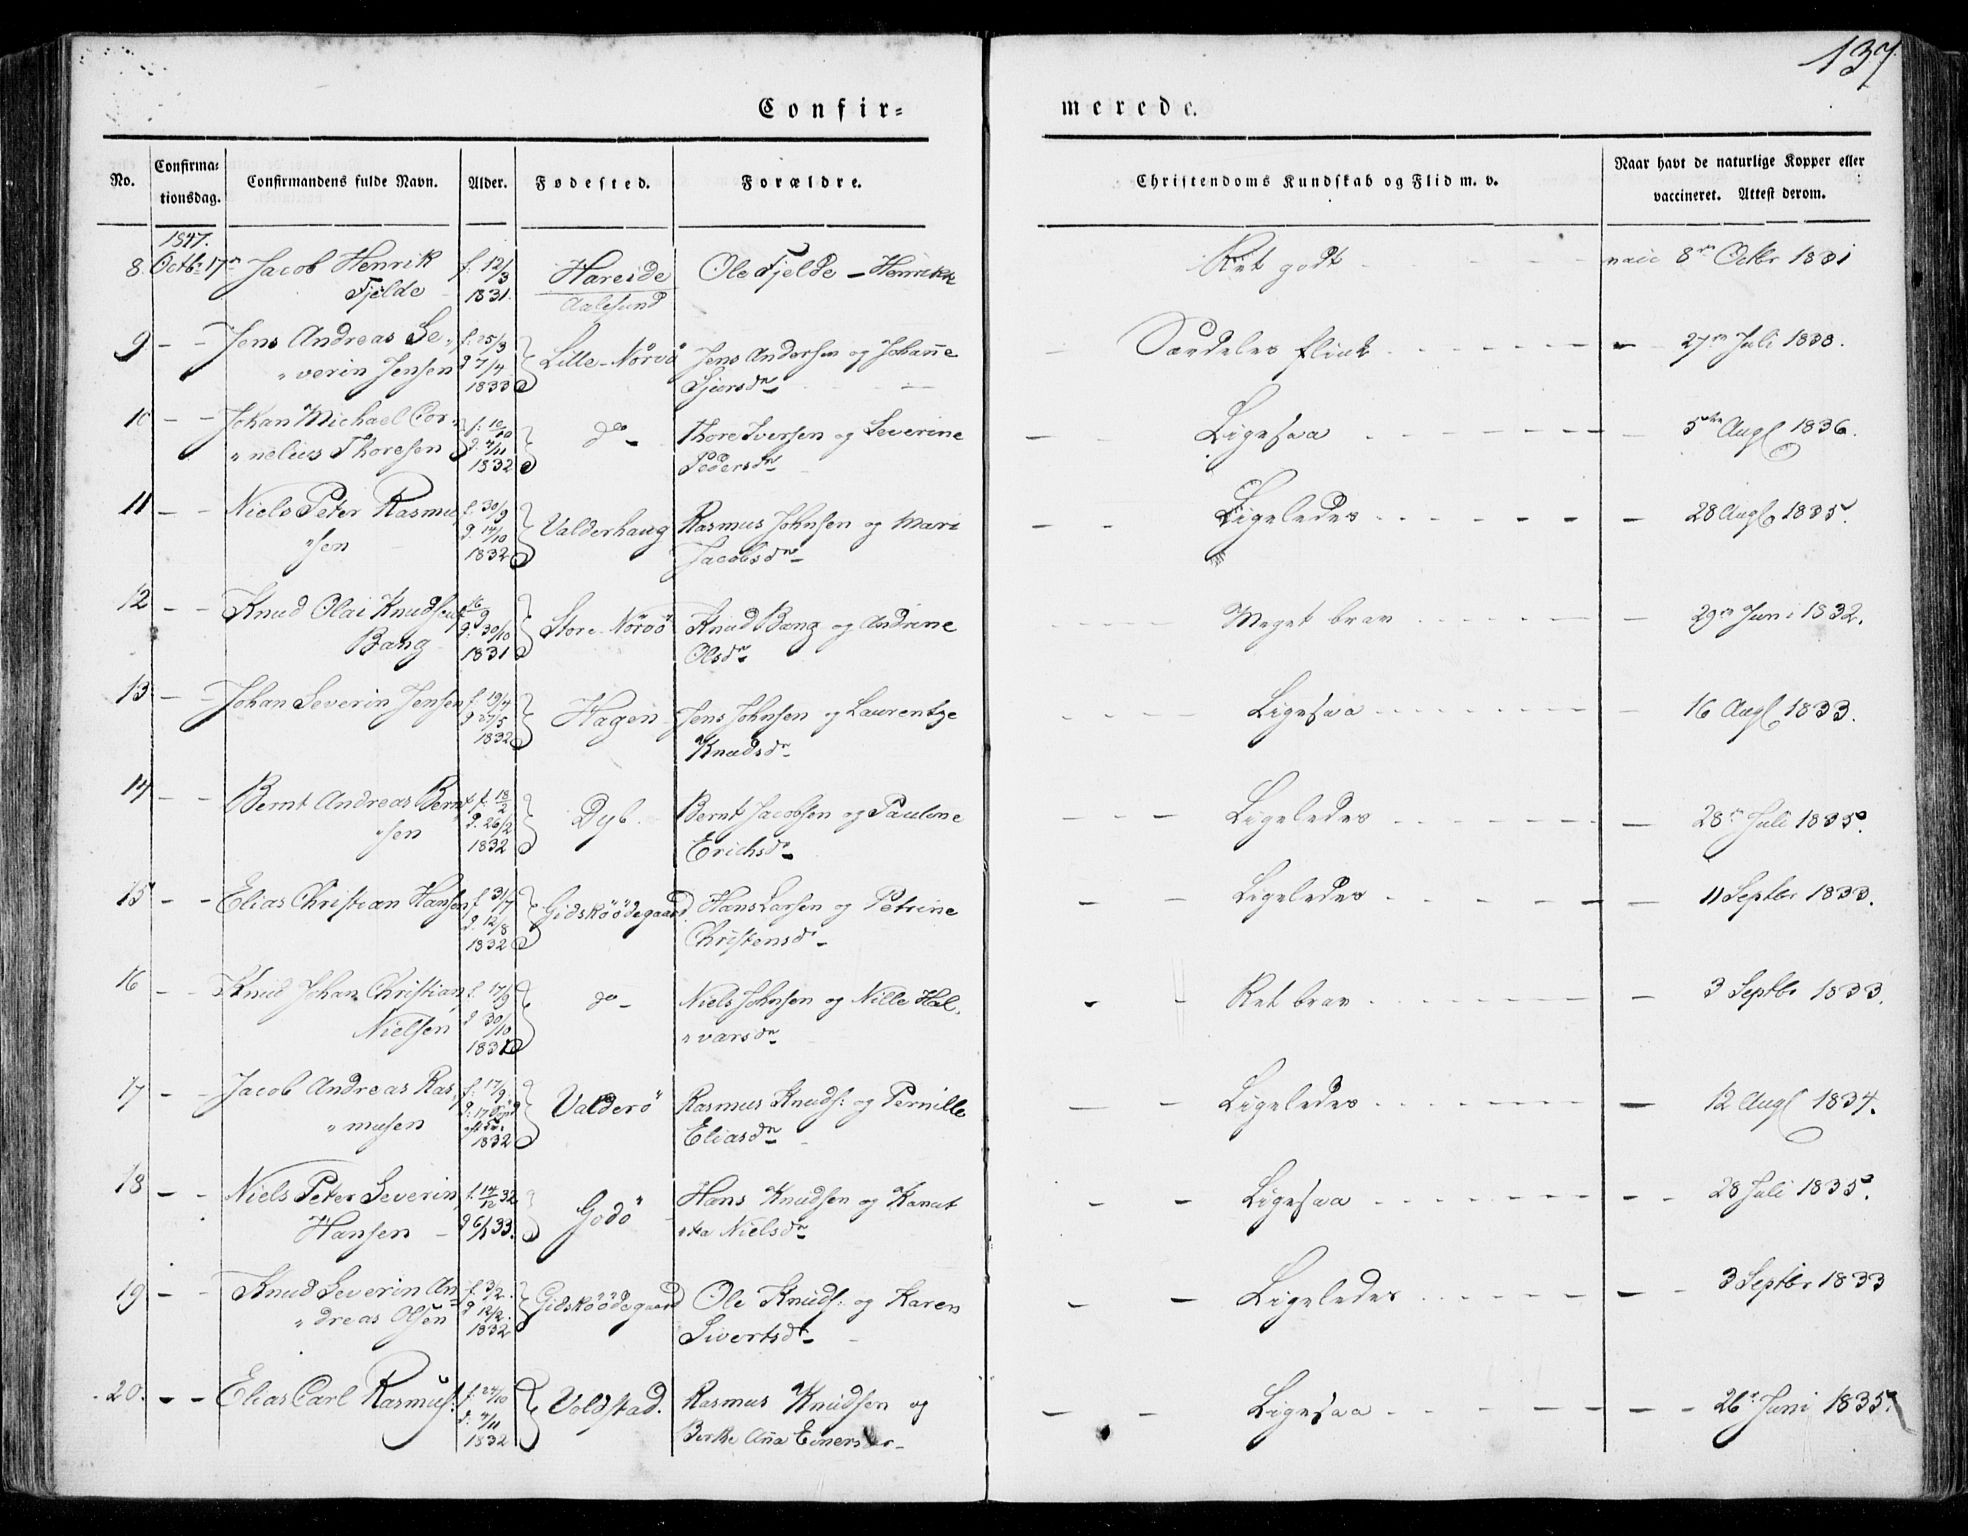 137
Confir=
merede.
No.
Confirma=
tionsdag.
Confirmandens fulde Navn.
Alder.
Fødested.
Forældre.
Christendoms Kundskab og Flid m. v.
Naar havt de naturlige Kopper eller
vaccineret. Attest derom.
1847.
8 Octbr 17n Jacob Henrik f. 12/3 Hareide Ole Fjelde - Ret godt - - - 8n Octbr 1831
Fjelde 1831. Aalesund
9 - - Jens Andreas Se= f. 25/3 Lille-Nörvö Jens Andersen og Johanne - Særdeles flink - - - 27n Juli 1833.
"verin Jensen 1833 Sjursdr
10 - - Johan Michael Cor= do - Thore Iversen og Severine - - Ligesaa - - - 5te Augs 1836.
"nelius Thoresen 1832 Pedersdr
11 - - Niels Peter Rasmu= f. 30/9 Valderhaug Rasmus Johnsen og Mari - - Ligeledes - - - 28 Augs 1835.
"sen g. 14/10 1832 Jacobsdr
12 - - Knud Olai Knudsen Store-Nörvö Knud Bang og Andrine - - Meget brav - - - 29n Juni 1832.
Bang g. 30/10 1831 Olsdr
13 - - Johan Severin Jensen f. 19/4 Hagen Jens Johnsen og Laurentze - - Ligesaa - - - 16 Augs 1833.
g. 27/5 1832 Knudsdr
14 - - Bernt Andreas Bernt= f. 18/2 Dyb. Bernt Jacobsen og Pauline - - Ligeledes - - - 28n Juli 1835.
"sen g. 26/2 1832 Erichsdr
15 - - Elias Christian Hansen f. 31/7 Gidskøödegaard. Hans Larsen og Petrine - - Ligeledes - - - 11 Septbr 1833.
g. 12/8 1832 Christensdr
16 - - Knud Johan Christian f. 17/9 do - Niels Johnsen og Nille Hal= - - Ret brav - - - 3 Septbr 1833.
Nielsen g. 30/10 1831 "varsdr
17 - - Jacob Andreas Ras= f. 17/9 Valderö Rasmus Knuds: og Pernille - - Ligeledes - - - 12 Augs 1834.
"musen 1832 Eliasdr
18 - - Niels Peter Severin f. 14/12 32 Godö Hans Knudsen og Kanut - - Ligesaa - - - 28 Juli 1835.
Hansen - g 6/1 33. "ta Nielsdr
19 - - Knud Severin An= f. 3/2. Gidskøödegaard Ole Knuds: og Karen - - Ligeledes - - - 3 Septbr 1833
"dreas Olsen g. 12/2. 1832 Sivertsdr
20. - - Elias Carl Rasmus: f. 24/10 Voldstad. Rasmus Knudsen og - - Ligesaa - - - 26n Juni 1835.
g. 4/11 1832 Ana